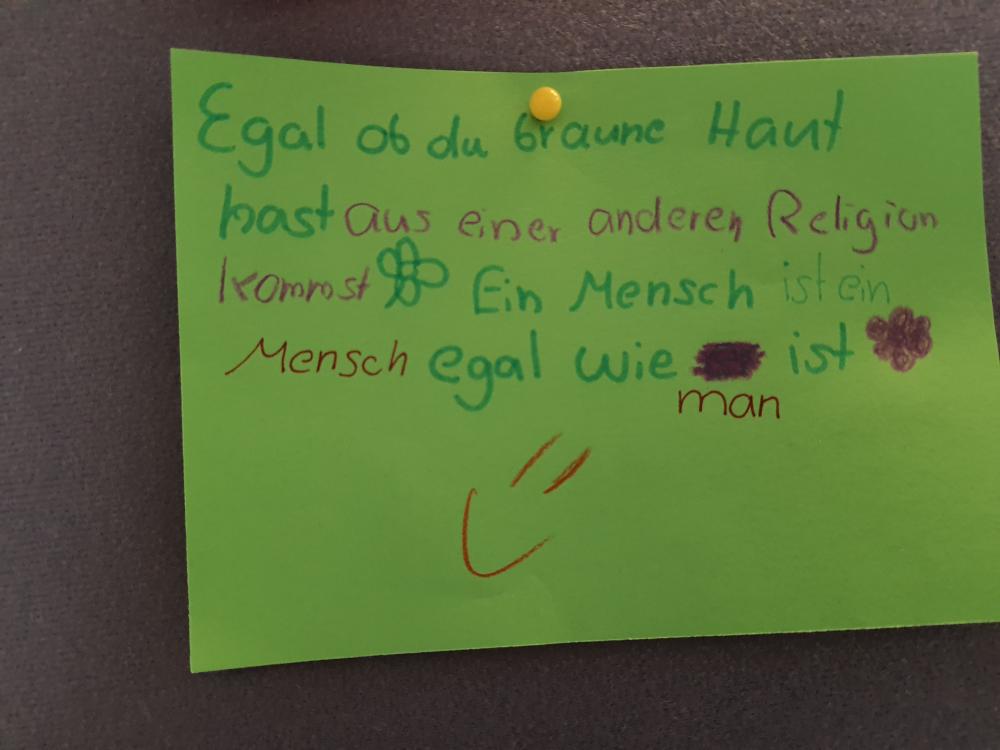 Egal ob du braune Haut
hast aus einer anderen Religion
kommst Ein Mensch ist ein
Mensch egal wie ist
man